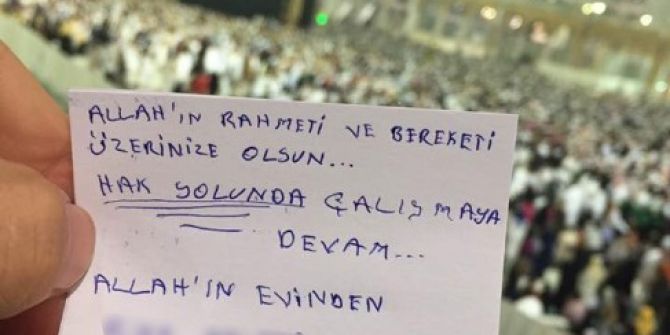 ALLAH'IN RAHMETİ VE BEREKETİ
ÜZERİNİZE OLSUN...
HAK YOLUNDA ÇALIŞMAYA
DEVAM...
ALLAH'IN EVİNDEN